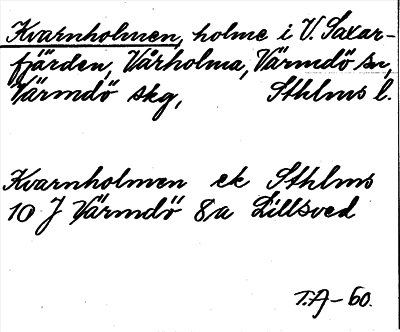 Kvarnholmen, holme i V. Saxar-
fjärden, Vårholma, Värmdö sn,
Värmdö skg, Sthlms l.
Kvarnholmen ek Sthlms
10 J Värmdö 8a Lillsved
T.A-60.